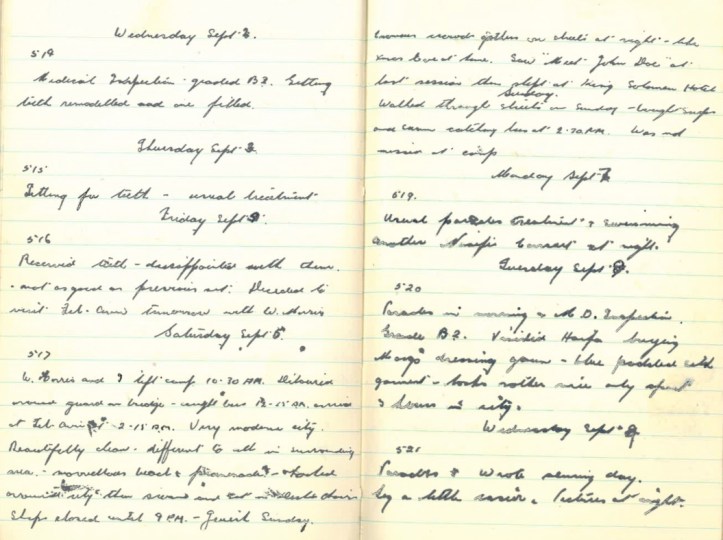 Wednesday Sept 2.
514
Medical Inspection graded B2. Getting
teeth remodelled and one filled.
Thursday Sept 3.
515
Fitting for teeth - usual treatment
Friday Sept
516
Received teeth - disappointed with them.
- not as good as previous set. Decided to
visit Tel-Aviv tomorrow with W. Morris
Saturday Sept 5.
517
W. and I left camp 10.30 AM.
guard on bridge - caught bus 12-15 AM. arrived
at Tel Aviv at 2-15 P.M. Very modern city.
Beautifully clean - different to all in surrounding
area. - marvellous beach & promenade -
around city then swam and sat in
Shops closed until 9 PM. - Jewish Sunday.
crowds gather on streets at night - like
Xmas Eve at home. Saw "Meet John Doe" at
last session then slept at King Soloman Hotel
Sunday.
Walked through streets on Sunday - bought
and swam catching bus at 2.30 P.M. Was not
at camp
Monday Sept 7
519.
Usual parades treatment & swimming
another concert at night.
Tuesday Sept 8.
520
Parades in morning & M.O. Inspection.
Grade B2. Visited Haifa buying
dressing gown - blue
garment - looks rather nice only spent
3 hours in city.
Wednesday Sept 9
521
Parades & wrote during day.
Leg a little Pictures at night.